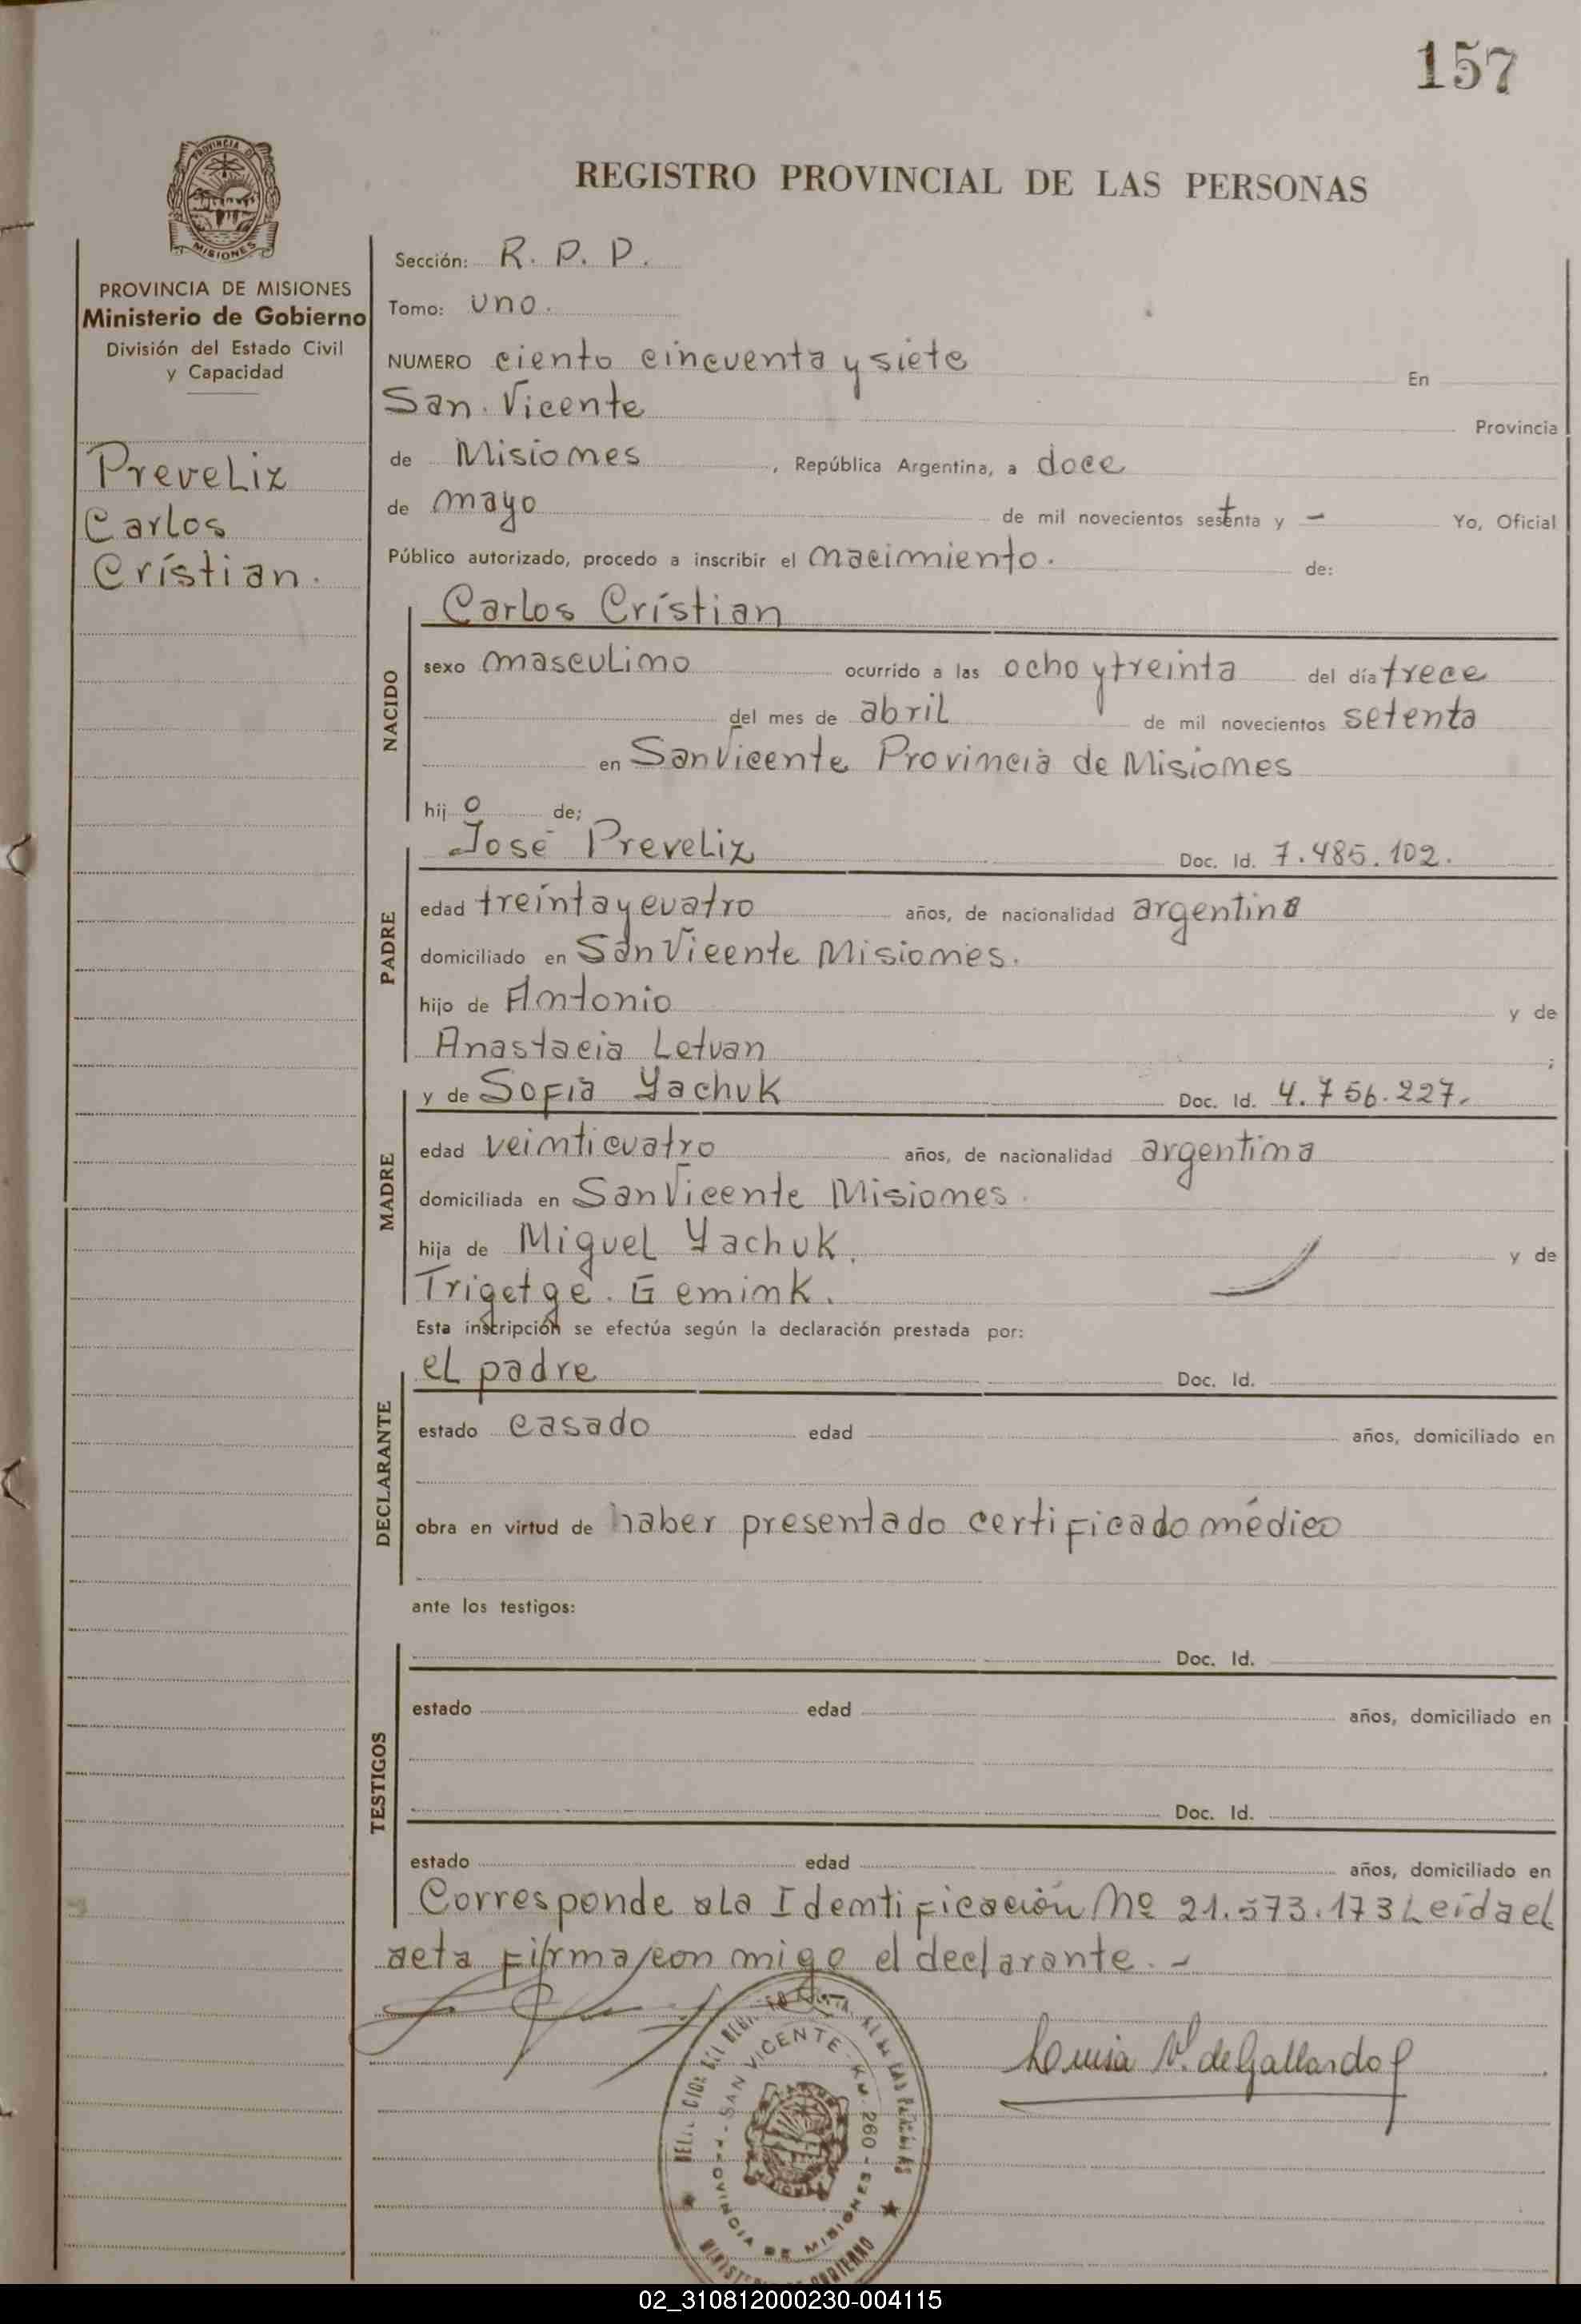 157
PROVINCIA DE
MISIONES
REGISTRO PROVINCIAL DE LAS PERSONAS
PROVINCIA DE MISIONES
Ministerio de Gobierno
División del Estado Civil
y Capacidad
Preveliz
Carlos
Crístian.
Sección: R. P. P.
Tomo: uno.
NUMERO ciento cincuenta y siete En
San Vicente Provincia
de Misiones, República Argentina, a doce
de mayo de mil novecientos setenta y - Yo, Oficial
Público autorizado, procedo a inscribir el nacimiento. de:
NACIDO
Carlos Crístian
sexo masculino ocurrido a las ocho y treinta del día trece
del mes de abril de mil novecientos setenta
en San Vicente Provincia de Misiones
hij o de;
PADRE
José Preveliz Doc. Id. 7.485.102.
edad treinta y cuatro años, de nacionalidad argentina
domiciliado en San Vicente Misiones.
hijo de Antonio y de
Anastacia Letvan ;
MADRE
y de Sofia Yachuk Doc. Id. 4.756.227.
edad veinticuatro años, de nacionalidad argentina
domiciliada en San Vicente Misiones.
hija de Miguel Yachuk. y de
Trigetge. Gemink.
Esta inscripción se efectúa según la declaración prestada por:
DECLARANTE
el padre Doc. Id.
estado casado edad años, domiciliado en
obra en virtud de haber presentado certificado médico
ante los testigos:
TESTIGOS
Doc. Id.
estado edad años, domiciliado en
Doc. Id.
estado edad años, domiciliado en
Corresponde a la Identificación Nº 21.573.173 Leida el
acta firma con migo el declarante. -
SAN VICENTE - KM. 260 - PROVINCIA DE MISIONES
Luisa V. de Gallardo
02_310812000230-004115